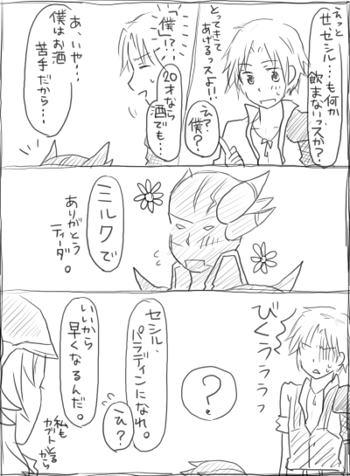 えっと
セ、セシル…も何か
飲まないっスか?
とってきて
あげるっスよ!!
え?
僕?
「僕」!?…
20才なら
酒でも…
あ、いや…
僕はお酒
苦手だから…
ミルクで
ありがとう
ティーダ。
びくうううっ
?
セシル、
パラディンになれ。
え?
いいから
早くなるんだ。
私も
カブトとる
から